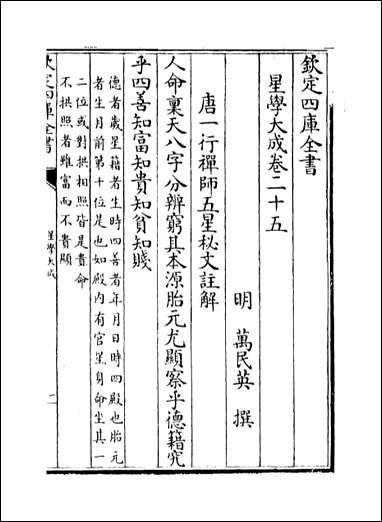 欽定四庫全書
星學大成卷二十五
明 萬民英 撰
唐一行禪師五星秘文註解
人命稟天八字分辨窮其本源胎元尤顯察乎德籍究
乎四善知富知貴知貧知賤
德者歲星籍者生時四善者年月日時四殿也胎元
者生月前第十位是也如殿内有官星身命坐其一
二位或對拱相照皆是貴命
不拱照者雖富而不貴顯
欽定四庫全書
星學大成
一